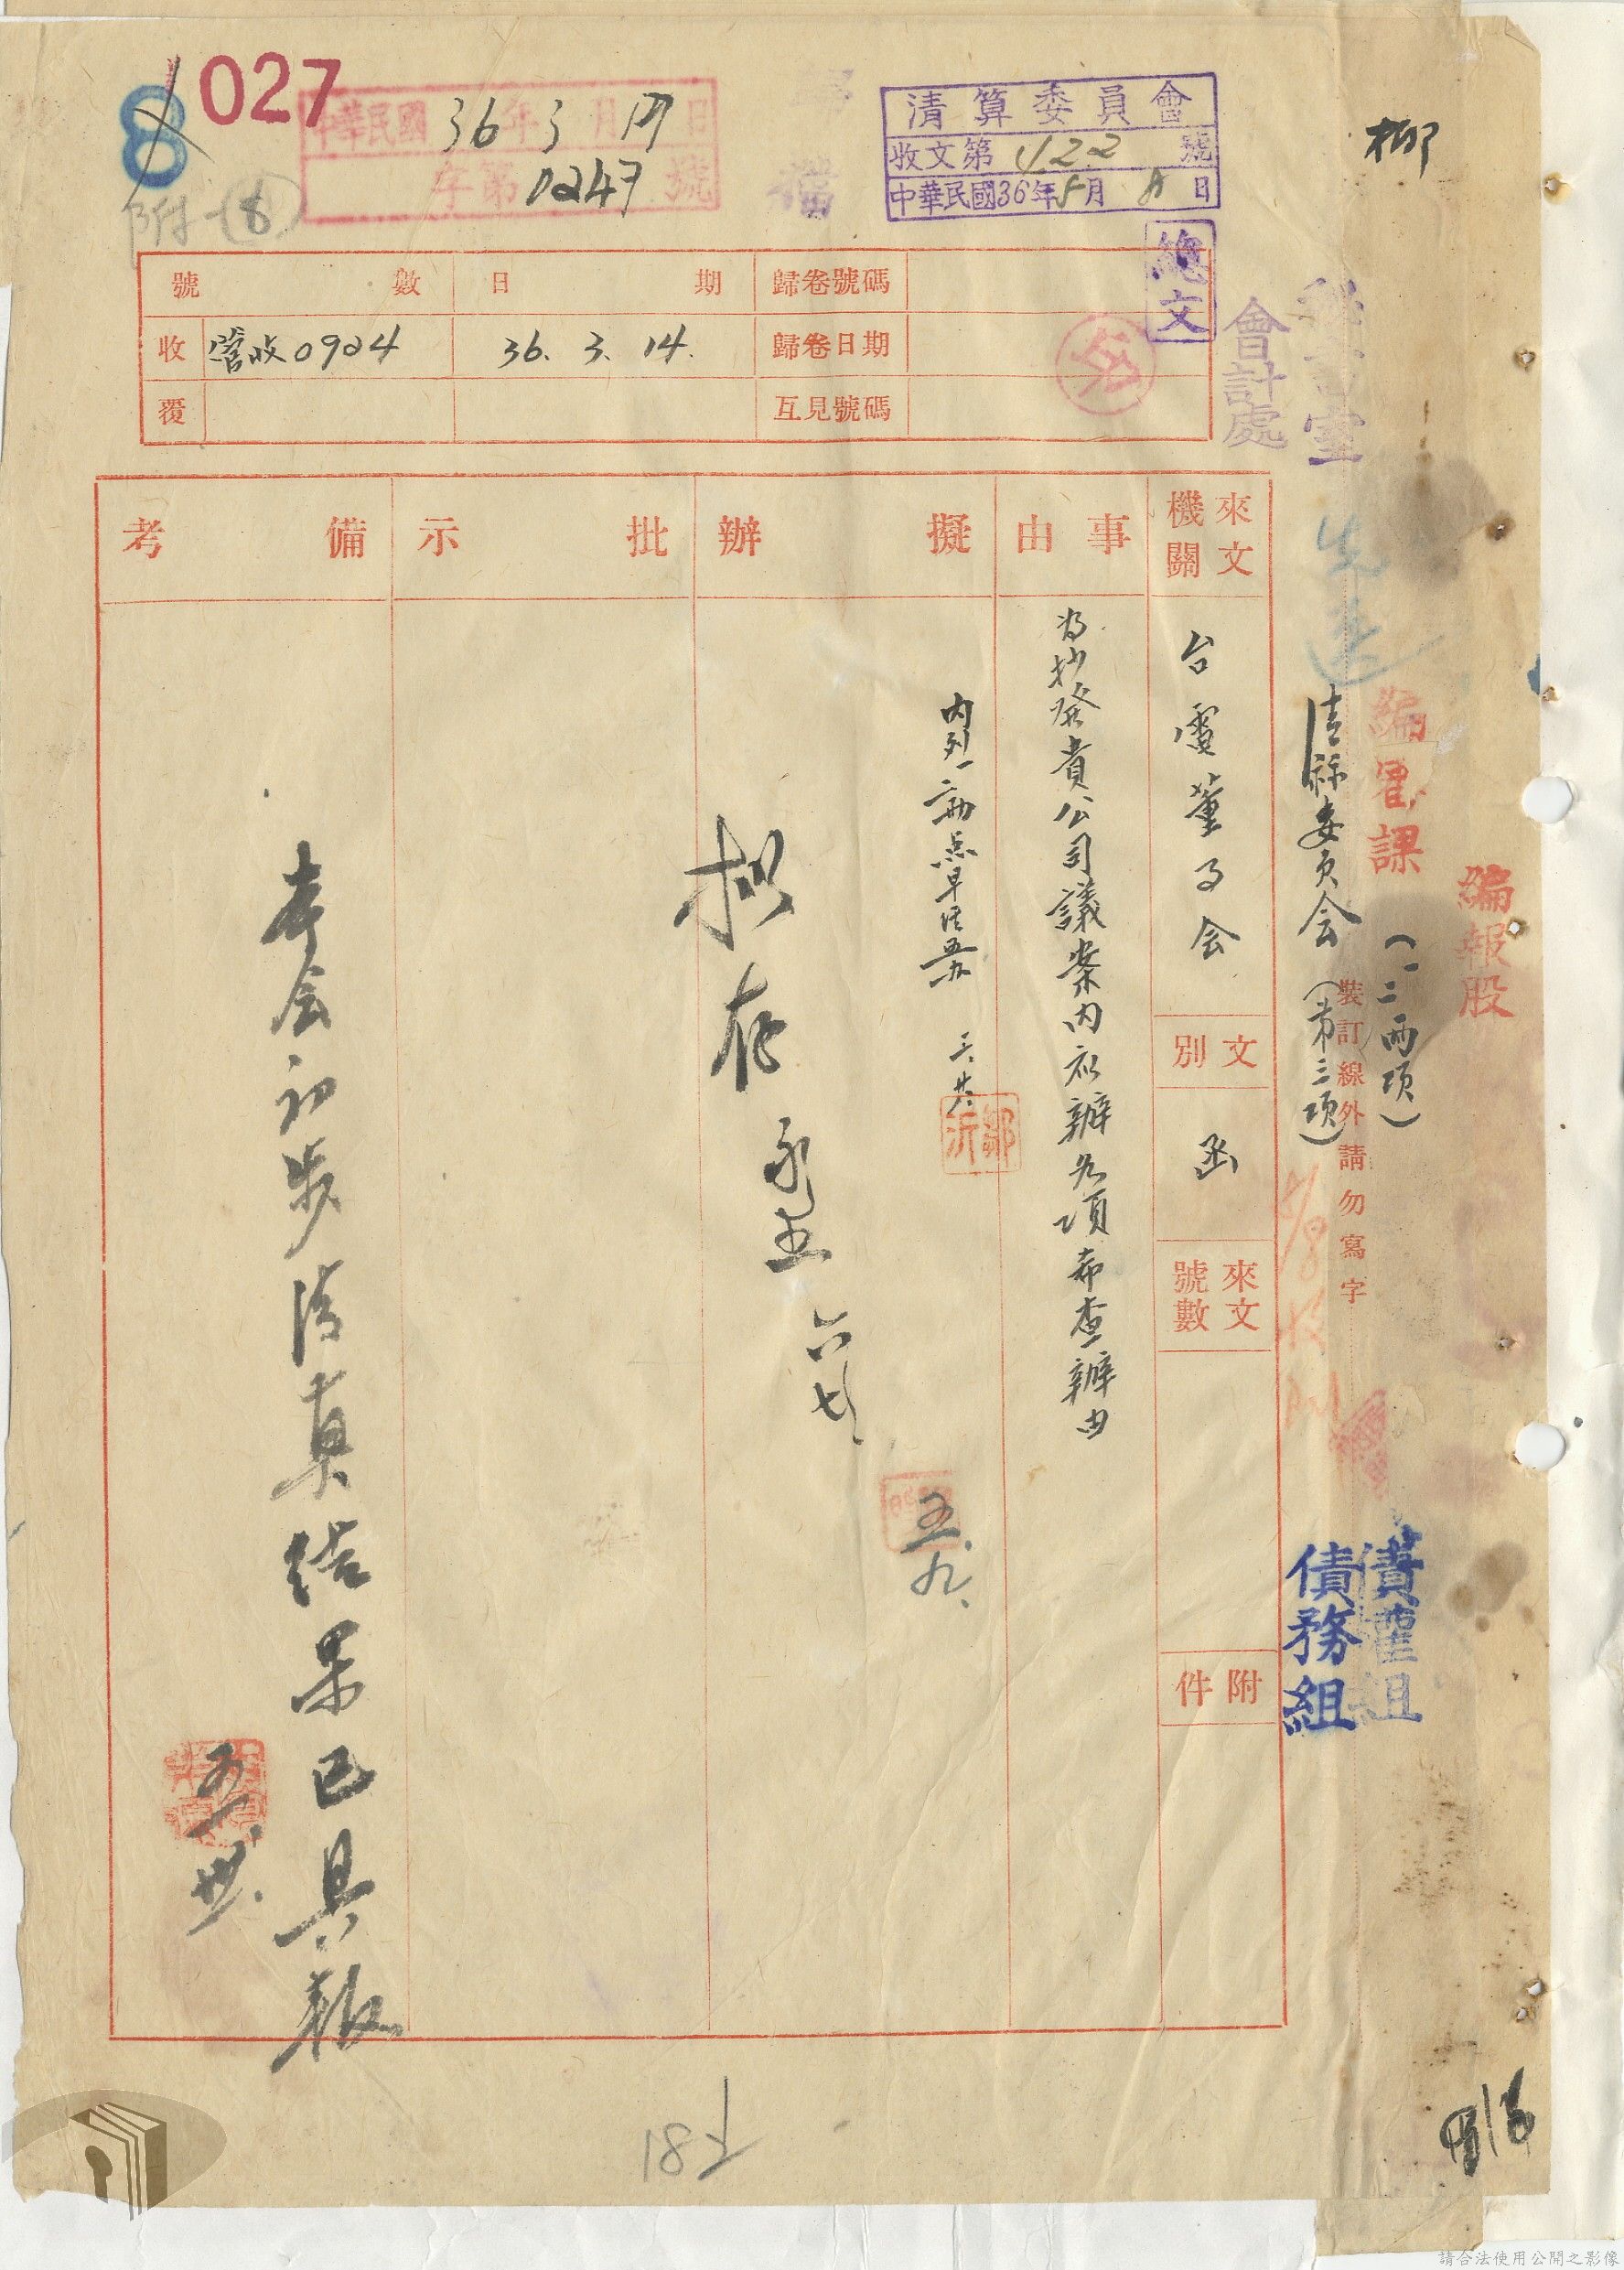 027
8
附-(8)
中華民國36年3月17日
字第0247號
清算委員會
收文第422號
中華民國36年5月8日
柳
總文
會計處
號數 日期 歸卷號碼
收 管收0924 36.3.14. 歸卷日期
覆 互見號碼
先送
編審課
(一二兩項)
編報股
清算委員会(第三項)
裝訂線外請勿寫字
債權組
債務組
來文機關
台電董事会
文別
函
來文號數
附件
事由
為抄發貴公司議案內應辦各項希查辦由
擬辦
三、廿八
鄒沂
五.九.
擬存
六七
批示
備考
本会初步清算結果已具報
五.卅.
181
請合法使用公開之影像